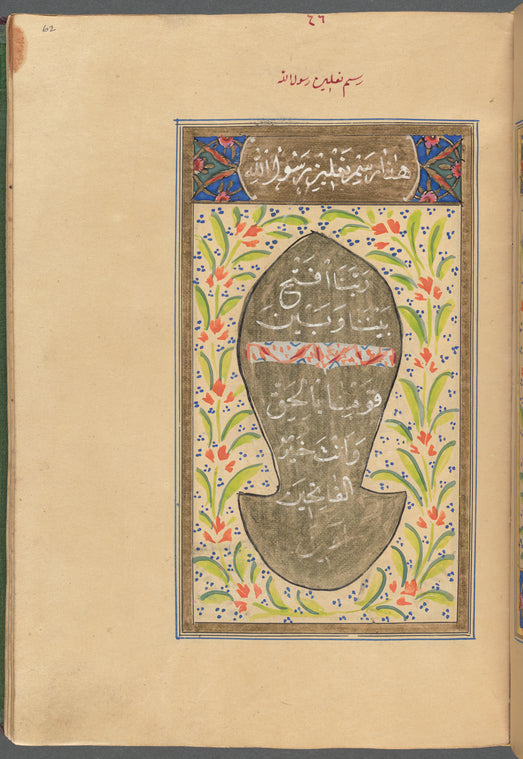 62
٤٦
رسم نعلين رسول الله
هذا رسم نعلين رسول الله
ربنا افتح
بيننا وبين
قومنا بالحق
وانت خير
الفاتحين